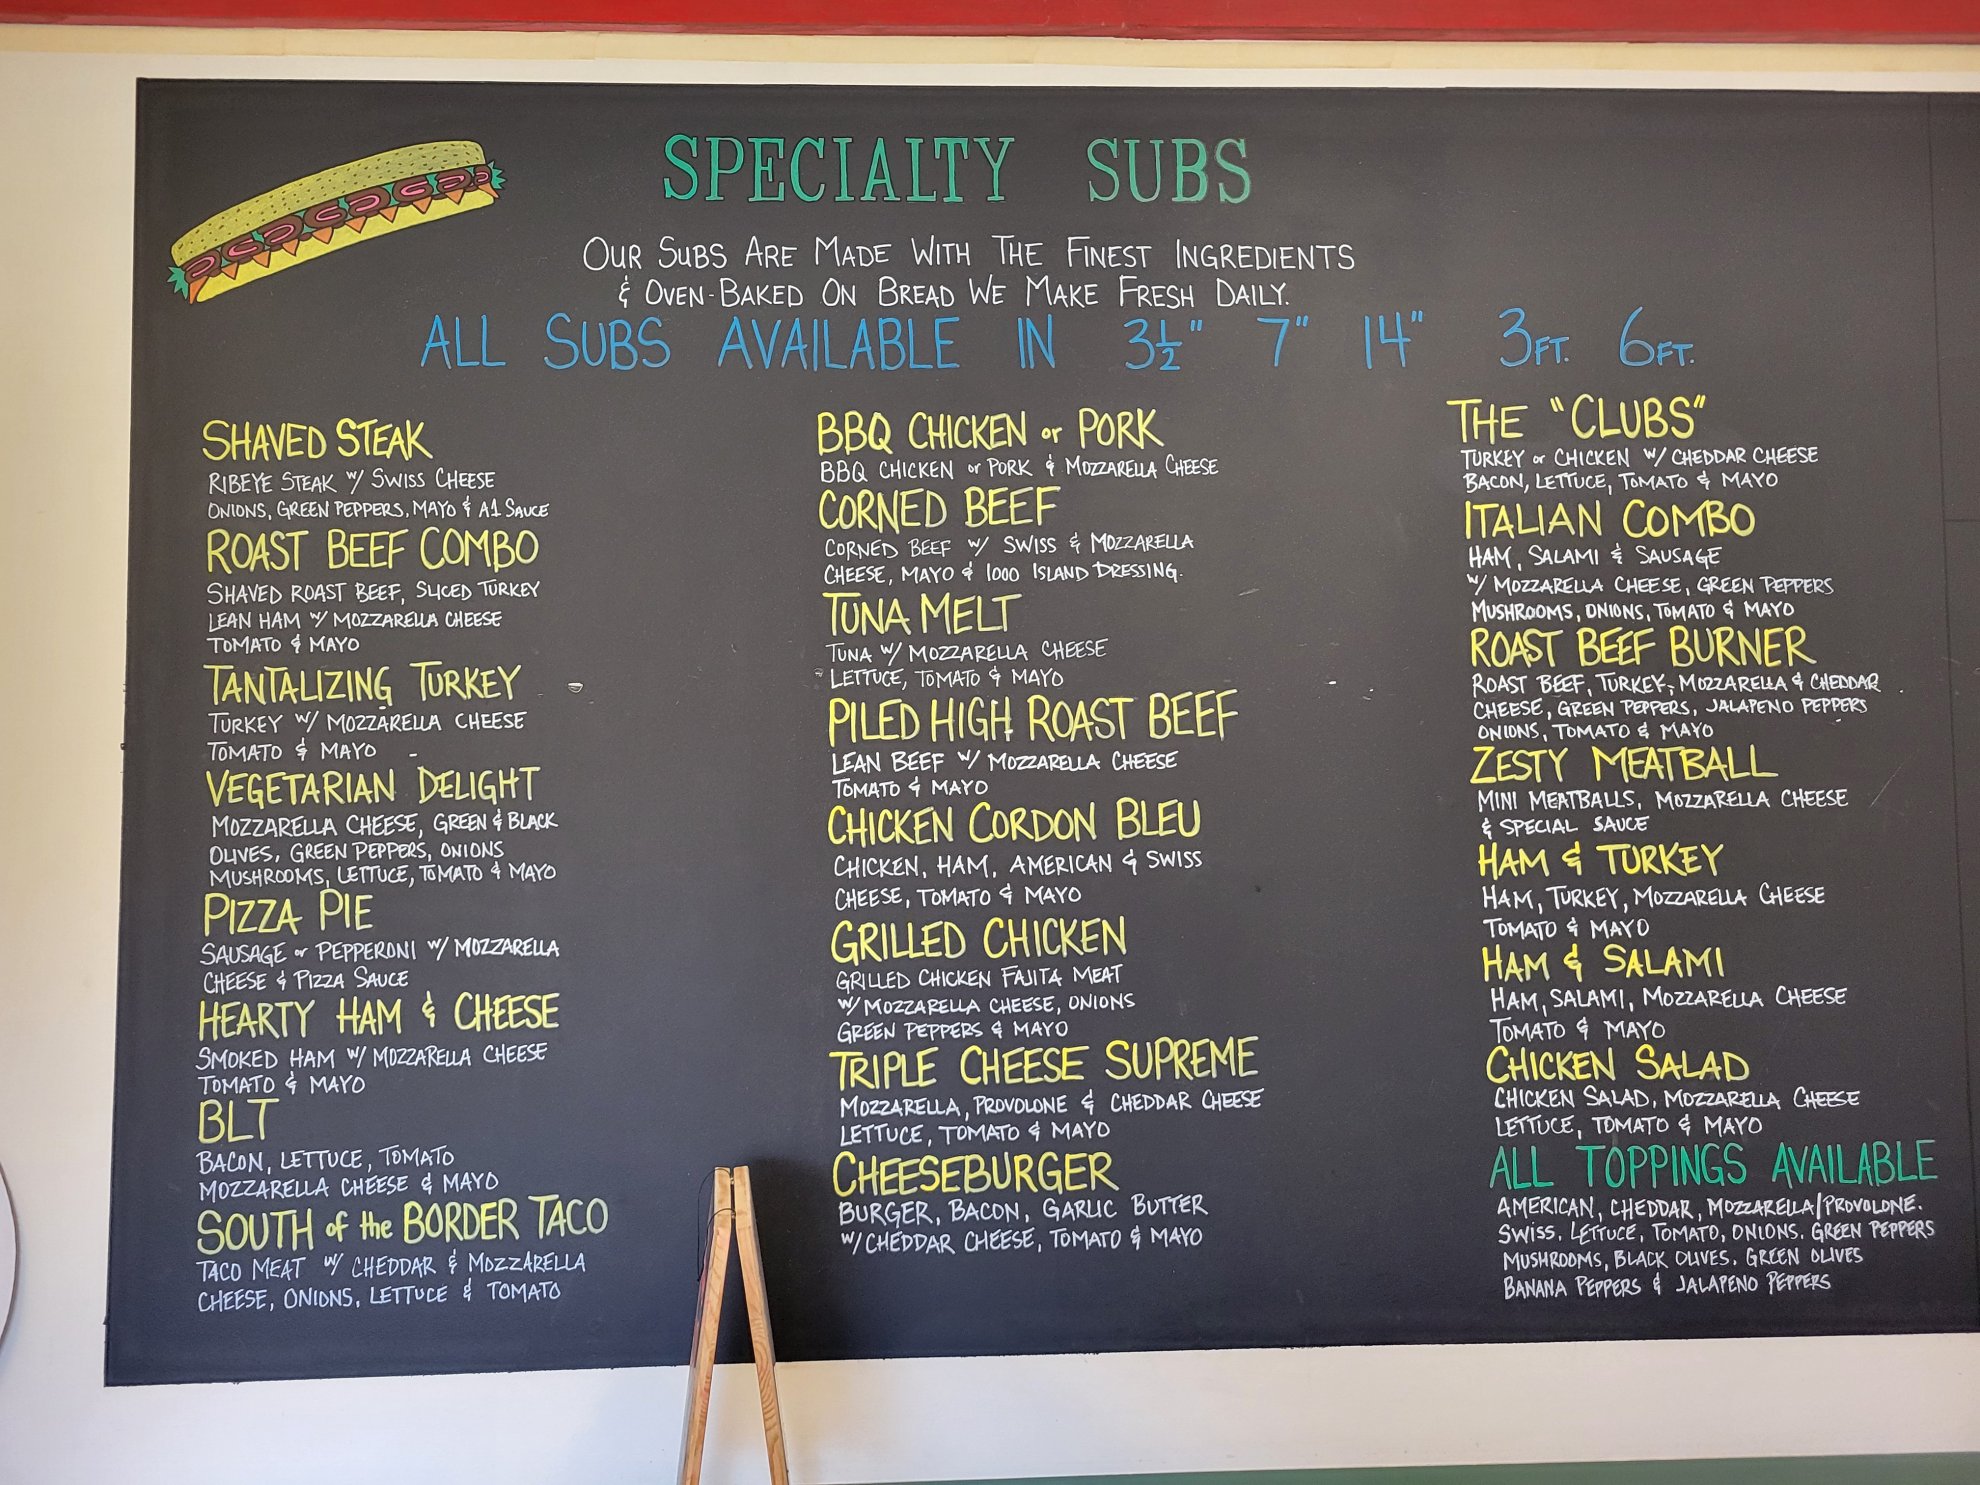 SPECIALTY SUBS
OUR SUBS ARE MADE WITH THE FINEST INGREDIENTS
& OVEN-BAKED ON BREAD WE MAKE FRESH DAILY.
ALL SUBS AVAILABLE IN 3½" 7" 14" 3FT. 6FT.
SHAVED STEAK
RIBEYE STEAK W/ SWISS CHEESE
ONIONS, GREEN PEPPERS, MAYO & A1 SAUCE
ROAST BEEF COMBO
SHAVED ROAST BEEF, SLICED TURKEY
LEAN HAM W/ MOZZARELLA CHEESE
TOMATO & MAYO
TANTALIZING TURKEY
TURKEY W/ MOZZARELLA CHEESE
TOMATO & MAYO
VEGETARIAN DELIGHT
MOZZARELLA CHEESE, GREEN & BLACK
OLIVES, GREEN PEPPERS, ONIONS
MUSHROOMS, LETTUCE, TOMATO & MAYO
PIZZA PIE
SAUSAGE or PEPPERONI W/ MOZZARELLA
CHEESE & PIZZA SAUCE
HEARTY HAM & CHEESE
SMOKED HAM W/ MOZZARELLA CHEESE
TOMATO & MAYO
BLT
BACON, LETTUCE, TOMATO
MOZZARELLA CHEESE & MAYO
SOUTH of the BORDER TACO
TACO MEAT W/ CHEDDAR & MOZZARELLA
CHEESE, ONIONS, LETTUCE & TOMATO
BBQ CHICKEN or PORK
BBQ CHICKEN or PORK & MOZZARELLA CHEESE
CORNED BEEF
CORNED BEEF W/ SWISS & MOZZARELLA
CHEESE, MAYO & 1000 ISLAND DRESSING.
TUNA MELT
TUNA W/ MOZZARELLA CHEESE
LETTUCE, TOMATO & MAYO
PILED HIGH ROAST BEEF
LEAN BEEF W/ MOZZARELLA CHEESE
TOMATO & MAYO
CHICKEN CORDON BLEU
CHICKEN, HAM, AMERICAN & SWISS
CHEESE, TOMATO & MAYO
GRILLED CHICKEN
GRILLED CHICKEN FAJITA MEAT
W/ MOZZARELLA CHEESE, ONIONS
GREEN PEPPERS & MAYO
TRIPLE CHEESE SUPREME
MOZZARELLA, PROVOLONE & CHEDDAR CHEESE
LETTUCE, TOMATO & MAYO
CHEESEBURGER
BURGER, BACON, GARLIC BUTTER
W/ CHEDDAR CHEESE, TOMATO & MAYO
THE "CLUBS"
TURKEY or CHICKEN W/ CHEDDAR CHEESE
BACON, LETTUCE, TOMATO & MAYO
ITALIAN COMBO
HAM, SALAMI & SAUSAGE
W/ MOZZARELLA CHEESE, GREEN PEPPERS
MUSHROOMS, ONIONS, TOMATO & MAYO
ROAST BEEF BURNER
ROAST BEEF, TURKEY, MOZZARELLA & CHEDDAR
CHEESE, GREEN PEPPERS, JALAPENO PEPPERS
ONIONS, TOMATO & MAYO
ZESTY MEATBALL
MINI MEATBALLS, MOZZARELLA CHEESE
& SPECIAL SAUCE
HAM & TURKEY
HAM, TURKEY, MOZZARELLA CHEESE
TOMATO & MAYO
HAM & SALAMI
HAM, SALAMI, MOZZARELLA CHEESE
TOMATO & MAYO
CHICKEN SALAD
CHICKEN SALAD, MOZZARELLA CHEESE
LETTUCE, TOMATO & MAYO
ALL TOPPINGS AVAILABLE
AMERICAN, CHEDDAR, MOZZARELLA/PROVOLONE.
SWISS. LETTUCE, TOMATO, ONIONS. GREEN PEPPERS
MUSHROOMS, BLACK OLIVES. GREEN OLIVES
BANANA PEPPERS & JALAPENO PEPPERS